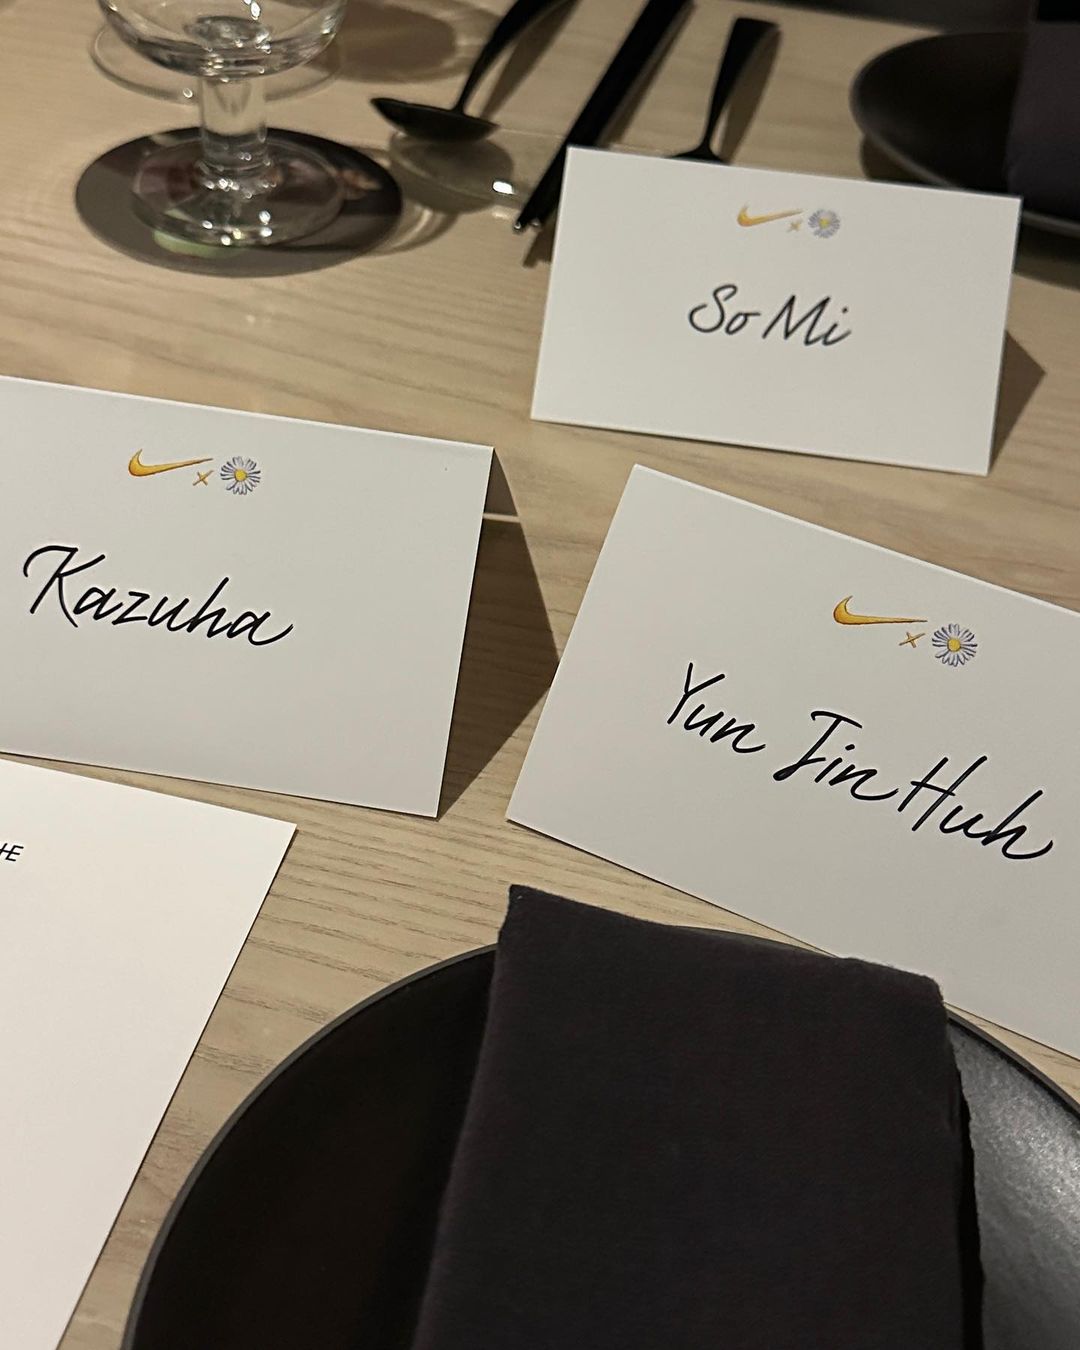 So Mi
Kazuha
Yun Jin Huh